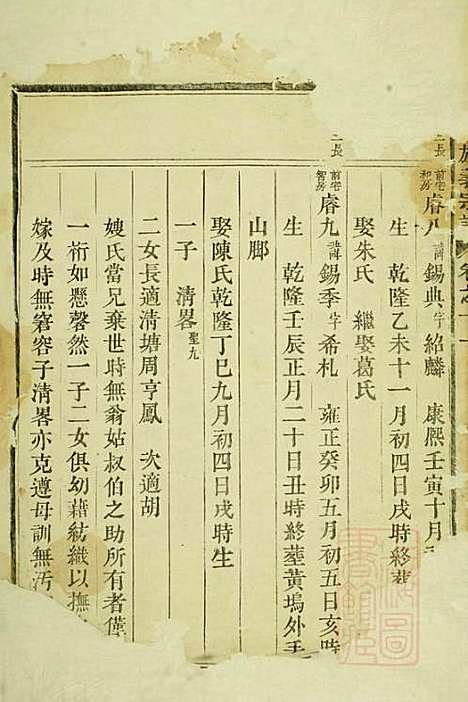 二長 前宅和房 睿八 諱錫典字紹麟 康熙壬寅十月
生 乾隆乙未十一月初四日戌時終葬
娶朱氏 繼娶葛氏
二長 前宅智房 睿九 諱錫季字希札 雍正癸卯五月初五日亥時
生 乾隆壬辰正月二十日丑時終塟黄塢外
山脚
娶陳氏乾隆丁巳九月初四日戌時生
一子 清畧 聖九
二女長適清塘周亨鳳 次適胡
嫂氏當兄棄世時無翁姑叔伯之助所有者僅
一桁如懸磬然一子二女俱幼藉紡織以撫
嫁及時無窘容子清畧亦克遵母訓無汚